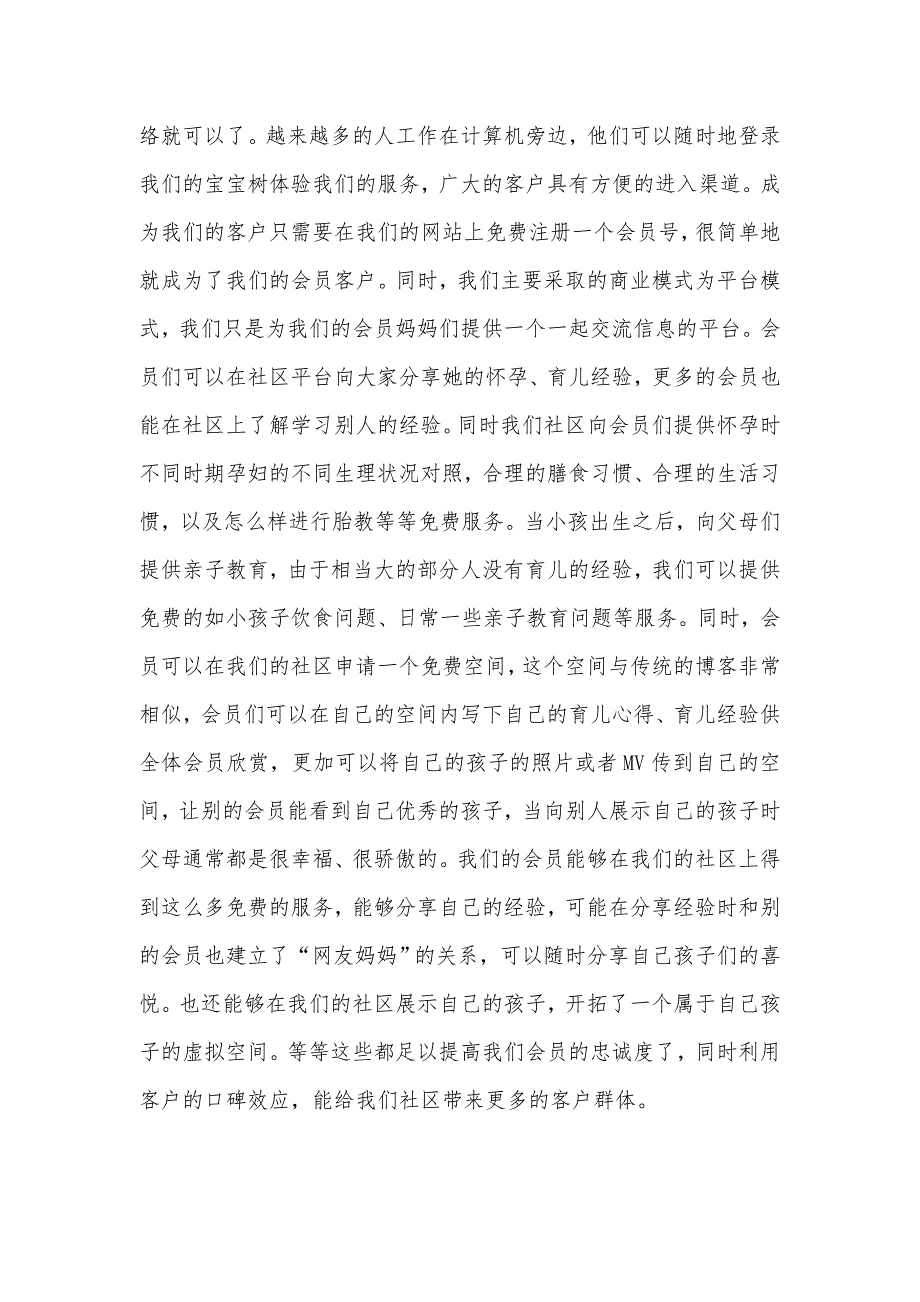 络就可以了。越来越多的人工作在计算机旁边，他们可以随时地登录
我们的宝宝树体验我们的服务，广大的客户具有方便的进入渠道。成
为我们的客户只需要在我们的网站上免费注册一个会员号，很简单地
就成为了我们的会员客户。同时，我们主要采取的商业模式为平台模
式，我们只是为我们的会员妈妈们提供一个一起交流信息的平台。会
员们可以在社区平台向大家分享她的怀孕、育儿经验，更多的会员也
能在社区上了解学习别人的经验。同时我们社区向会员们提供怀孕时
不同时期孕妇的不同生理状况对照，合理的膳食习惯、合理的生活习
惯，以及怎么样进行胎教等等免费服务。当小孩出生之后，向父母们
提供亲子教育，由于相当大的部分人没有育儿的经验，我们可以提供
免费的如小孩子饮食问题、日常一些亲子教育问题等服务。同时，会
员可以在我们的社区申请一个免费空间，这个空间与传统的博客非常
相似，会员们可以在自己的空间内写下自己的育儿心得、育儿经验供
全体会员欣赏，更加可以将自己的孩子的照片或者MV传到自己的空
间，让别的会员能看到自己优秀的孩子，当向别人展示自己的孩子时
父母通常都是很幸福、很骄傲的。我们的会员能够在我们的社区上得
到这么多免费的服务，能够分享自己的经验，可能在分享经验时和别
的会员也建立了“网友妈妈”的关系，可以随时分享自己孩子们的喜
悦。也还能够在我们的社区展示自己的孩子，开拓了一个属于自己孩
子的虚拟空间。等等这些都足以提高我们会员的忠诚度了，同时利用
客户的口碑效应，能给我们社区带来更多的客户群体。